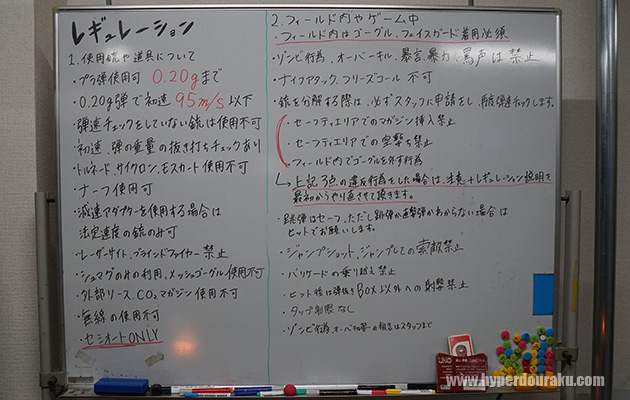 レギュレーション
1.使用銃や道具について
・プラ弾使用可 0.20gまで
・0.20g弾で初速95m/s以下
・弾速チェックをしていない銃は使用不可
・初速、弾の重量の抜き打ちチェックあり
・トルネード、サイクロン、モスカート使用不可
・ナーフ使用可
・減速アダプターを使用する場合は
法定速度の銃のみ可
・レーザーサイト、ブラインドファイヤー禁止
・シュマグのみの利用、メッシュゴーグル使用不可
・外部ソース、CO2マガジン使用不可
・無線の使用不可
・セミオートONLY
2.フィールド内やゲーム中
・フィールド内はゴーグル、フェイスガード着用必須
・ゾンビ行為、オーバーキル、暴言、暴力、罵声は禁止
・ナイフアタック、フリーズコール 不可
・銃を分解する際は、必ずスタッフに申請をし、再度弾速チェックします。
・セーフティエリアでのマガジン挿入禁止
・セーフティエリアでの空撃ち禁止
・フィールド内でゴーグルを外す行為
↳上記3点の違反行為をした場合は、注意+レギュレーション説明を
最初からやり直させて頂きます。
・跳弾はセーフ、ただし跳弾か直撃弾かわからない場合は
ヒットでお願いします。
・ジャンプショット、ジャンプしての索敵禁止
・バリケードの乗り越え禁止
・ヒット後は弾抜きBOX以外への射撃禁止
・タップ制限なし
・ゾンビ行為、オーバーの報告はスタッフまで
UNO
www.hyperdouraku.com